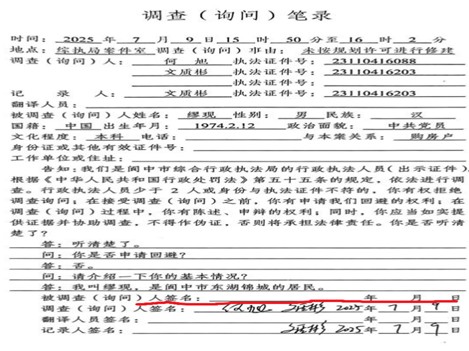 调查（询问）笔录
时间：2025年7月9日15时50分至16时2分
地点：综执局案件室 调查（询问）事由：未按规划许可进行修建
调查（询问）人：何旭 执法证件号：23110416088
文质彬 执法证件号：23110416203
记录人：文质彬 执法证件号：23110416203
翻译人员：
被调查（询问）人姓名：缪现 性别：男 民族：汉
国籍：中国 出生年月：1974.2.12 政治面貌：中共党员
文化程度：本科 电话： 与本案关系：购房户
身份证或其他有效证件号：
工作单位或住址：
告知：我们是阆中市综合行政执法局的行政执法人员（出示证件），
根据《中华人民共和国行政处罚法》第五十五条的规定，依法进行调
查。行政执法人员少于2人或身份与执法证件不符的，你有权拒绝
调查询问；在接受调查（询问）之前，你有申请我们回避的权利；在
调查（询问）过程中，你有陈述、申辩的权利；同时，你应当如实提
供证据并协助调查，不得作伪证，否则将承担法律责任。你是否听清
楚了？
答：听清楚了。
问：你是否申请回避？
答：否。
问：请介绍一下你的基本情况？
答：我叫缪现，是阆中市东湖锦城的居民。
被调查（询问）人签名： 年 月 日
调查（询问）人签名： 2025年7月9日
翻译人员签名： 年 月 日
记录人签名： 2025年7月9日